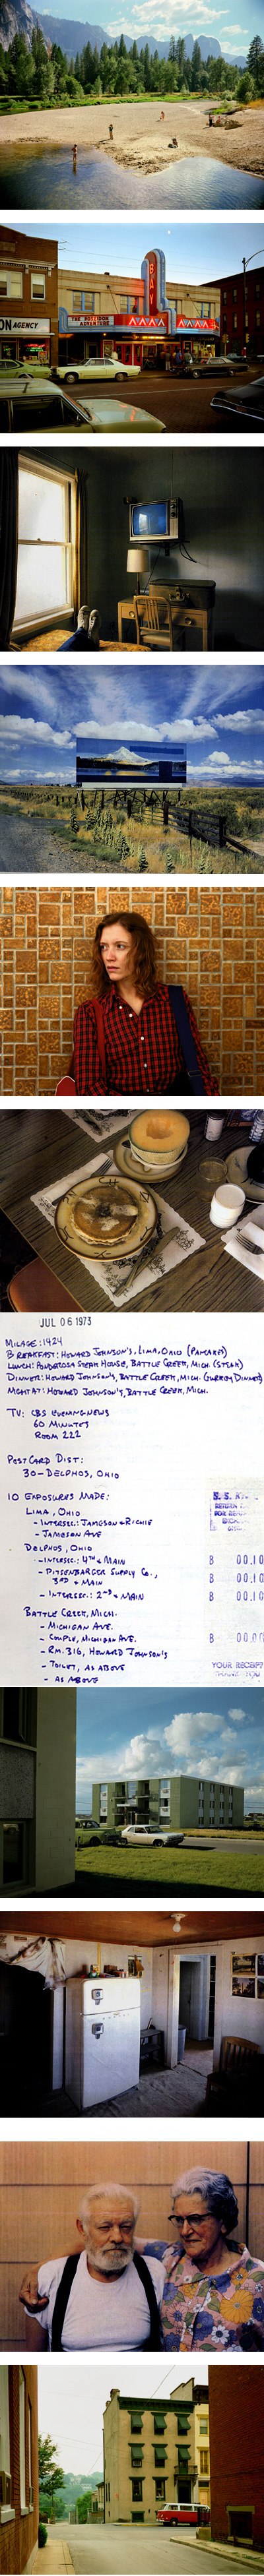 ON AGENCY
THE
BAY
JUL 06 1973
MILAGE: 1424
BREAKFAST: HOWARD JOHNSON'S, LIMA, OHIO (PANCAKES)
LUNCH: PONDEROSA STEAK HOUSE, BATTLE CREEK, MICH. (STEAK)
DINNER: HOWARD JOHNSON'S, BATTLE CREEK, MICH. (TURKEY DINNER)
NIGHT AT: HOWARD JOHNSON'S, BATTLE CREEK, MICH.
TV: CBS EVENING NEWS
60 MINUTES
ROOM 222
POSTCARD DIST:
30-DELPHOS, OHIO
10 EXPOSURES MADE:
LIMA, OHIO
- INTERSEC.: JAMESON & RICHIE
- JAMESON AVE
DELPHOS, OHIO
- INTERSEC.: 4TH & MAIN
- PITSENBARGER SUPPLY CO.,
3RD & MAIN
- INTERSEC.: 2ND & MAIN
BATTLE CREEK, MICH.
- MICHIGAN AVE.
- COUPLE, MICHIGAN AVE.
- RM. 316, HOWARD JOHNSON'S
- TOILET, AS ABOVE
- AS ABOVE
B 00.10
B 00.10
B 00.10
B 00.0
YOUR RECEIPT
THANK YOU